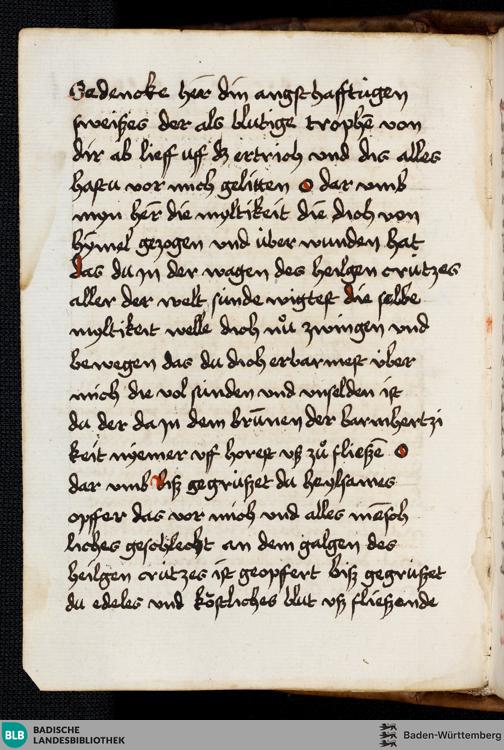 Gedencke her din angsthafftúgen
sweißes der als blútige trophē von
dir ab lieff uff dz ertrich vnd dis alles
hastu vor mich gelitten o dar vmb
myn her die myltikeit die dich von
hymel gezogen vnd úber wunden hat
das du jn der wagen des heilgen crútzes
aller der welt súnde wigtest die selbe
myltikeit welle dich nů zwingen vnd
bewegen das du dich erbarmest úber
mich die vol súnden vnd vnselden ist
du der da jn dem brūnen der barmhertzi
keit nyemer vf horest vß zů fließē o
dar vmb Biß gegrúßet du heylsames
opffer das vor mich vnd alles mēsch
liches geschlecht an dem galgen des
heilgen crútzes ist geopfert biß gegrúßet
du edeles vnd kőstliches blut vß fließende
BLB
BADISCHE
LANDESBIBLIOTHEK
Baden-Württemberg